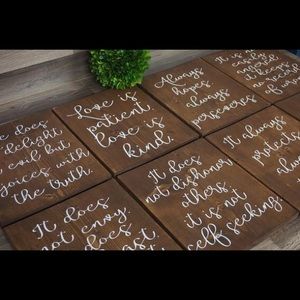 Love is
patient,
love is
kind.
Always
hopes,
always
perseveres
it is not
easily
angered
it keeps
no record
does
delight
evil but
with
the truth.
It does
not dishonor
others
it is not
self seeking
It always
protects
It does
not envy,
does